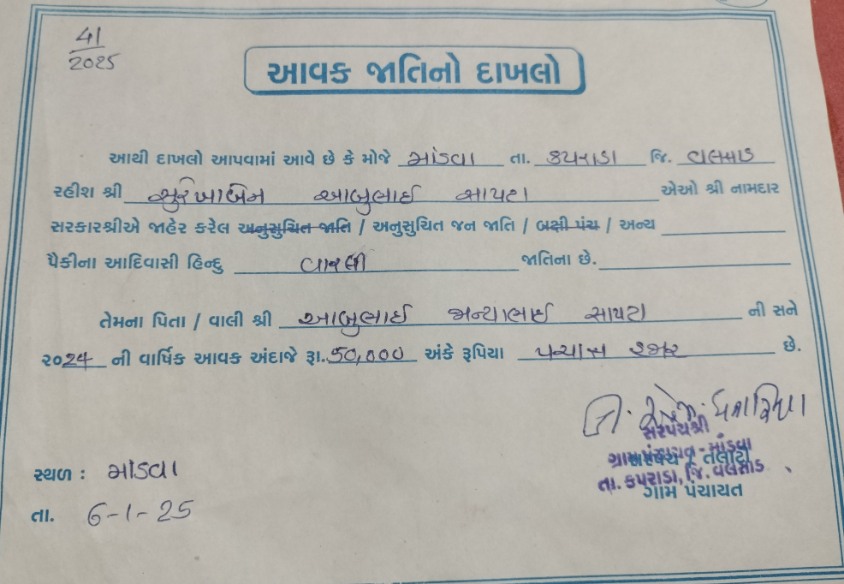 41
2025
આવક જાતિનો દાખલો
આથી દાખલો આપવામાં આવે છે કે મોજે માંડવા તા. કપરાડા જિ. વલસાડ
રહીશ શ્રી સુરેખાબેન આબુભાઈ સાપટા એઓ શ્રી નામદાર
સરકારશ્રીએ જાહેર કરેલ અનુસુચિત જાતિ / અનુસુચિત જન જાતિ / બક્ષી પંચ / અન્ય
પૈકીના આદિવાસી હિન્દુ વારલી જાતિના છે.
તેમના પિતા / વાલી શ્રી આબુભાઈ જાન્યાભાઈ સાપટા ની સને
૨૦24 ની વાર્ષિક આવક અંદાજે રૂા. 50,000 અંકે રૂપિયા પચાસ હજાર છે.
સરપંચશ્રી
ગ્રામ પંચાયત-માંડવા
સરપંચ / તલાટી
તા. કપરાડા, જિ. વલસાડ
ગામ પંચાયત
સ્થળ : માંડવા
તા. 6-1-25